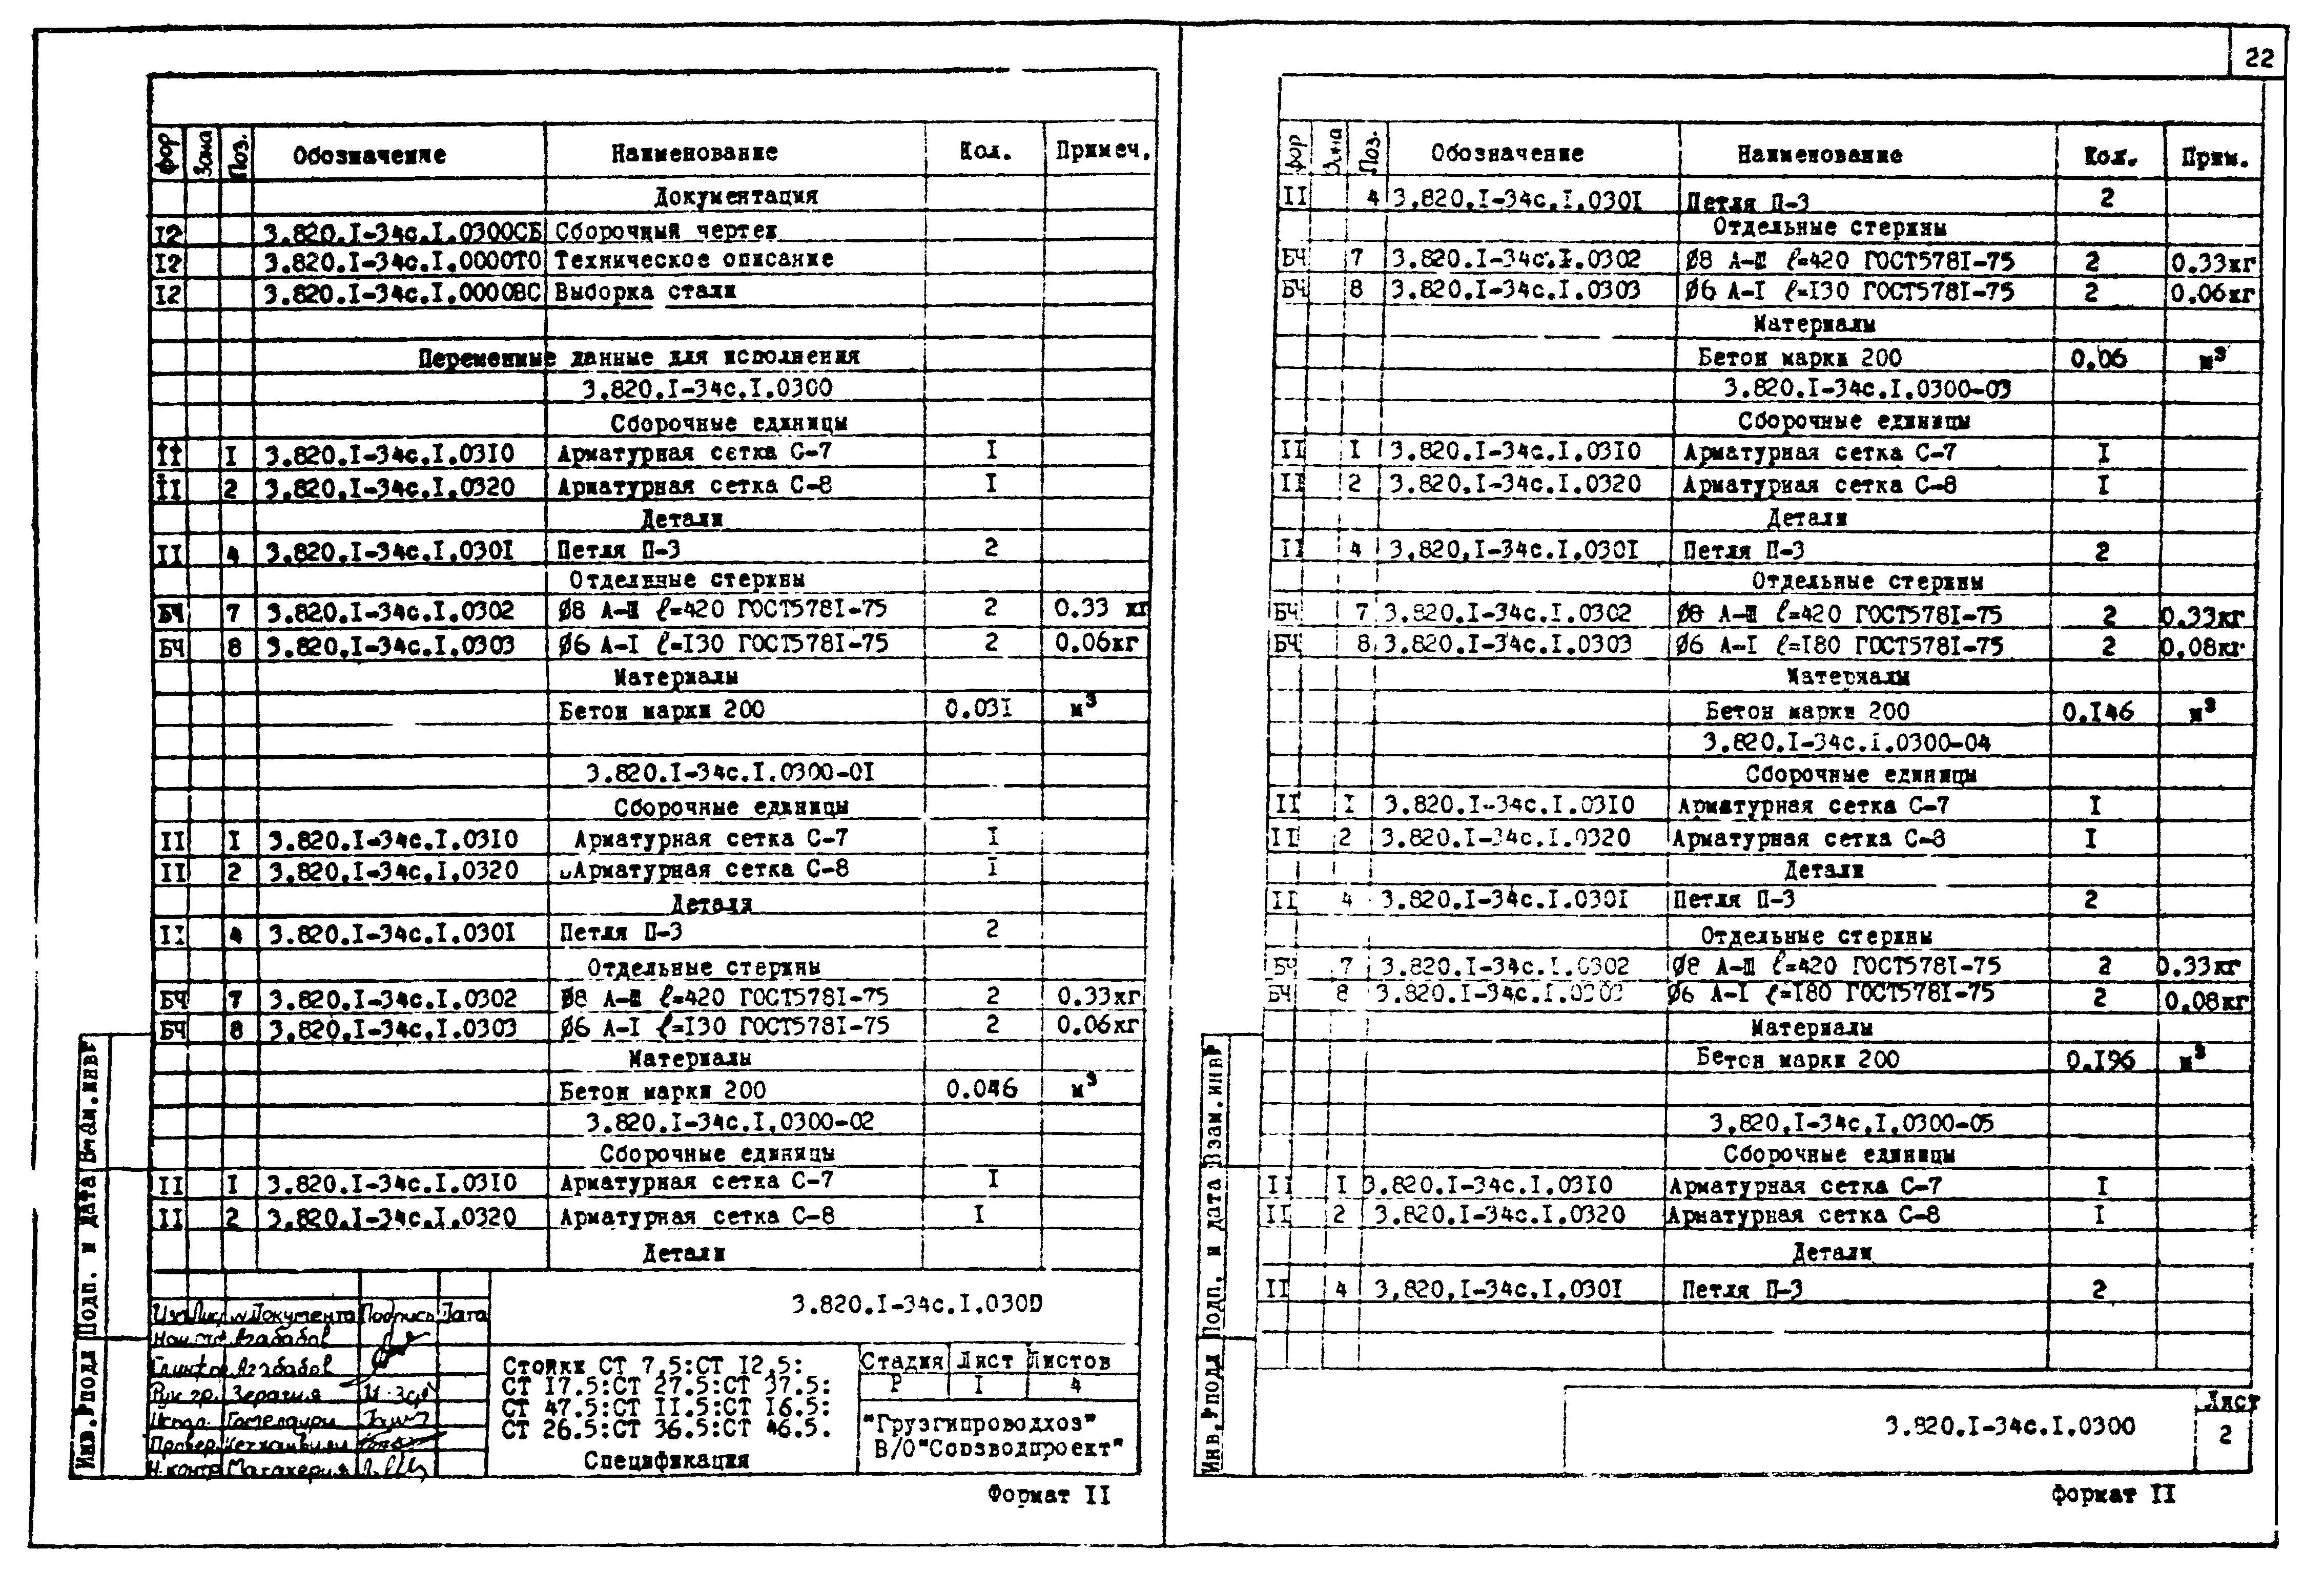 22
фор Зона Поз. Обозначение Наименование Кол. Примеч.
Документация
I2 3.820.I-34с.I.0300СБ Сборочный чертеж
I2 3.820.I-34с.I.0000ТО Техническое описание
I2 3.820.I-34с.I.0000ВС Выборка стали
Переменные данные для исполнения
3.820.I-34с.I.0300
Сборочные единицы
II I 3.820.I-34с.I.03I0 Арматурная сетка С-7 I
II 2 3.820.I-34с.I.0320 Арматурная сетка С-8 I
Детали
II 4 3.820.I-34с.I.030I Петля П-3 2
Отдельные стержны
БЧ 7 3.820.I-34с.I.0302 Ø8 А-Ш ℓ=420 ГОСТ578I-75 2 0.33 кг
БЧ 8 3.820.I-34с.I.0303 Ø6 А-I ℓ=I30 ГОСТ578I-75 2 0.06кг
Материалы
Бетон марки 200 0.03I м³
3.820.I-34с.I.0300-0I
Сборочные единицы
II I 3.820.I-34с.I.03I0 Арматурная сетка С-7 I
II 2 3.820.I-34с.I.0320 Арматурная сетка С-8 I
Детали
II 4 3.820.I-34с.I.030I Петля П-3 2
Отдельные стержны
БЧ 7 3.820.I-34с.I.0302 Ø8 А-Ш ℓ=420 ГОСТ578I-75 2 0.33кг
БЧ 8 3.820.I-34с.I.0303 Ø6 А-I ℓ=I30 ГОСТ578I-75 2 0.06кг
Материалы
Бетон марки 200 0.046 м³
3.820.I-34с.I.0300-02
Сборочные единицы
II I 3.820.I-34с.I.03I0 Арматурная сетка С-7 I
II 2 3.820.I-34с.I.0320 Арматурная сетка С-8 I
Детали
Инв.№подл Подп. и дата Взам.инв№
3.820.I-34с.I.0300
Изм Лист №Документа Подпись Дата
Нач.от. Агабабов
Гл.инж.пр. Агабабов
Рук.гр. Зерагия
Испол. Гомелаури
Провер.
Н.контр
Стойки СТ 7.5:СТ I2.5:
СТ I7.5:СТ 27.5:СТ 37.5:
СТ 47.5:СТ II.5:СТ I6.5:
СТ 26.5:СТ 36.5:СТ 46.5.
Спецификация
Стадия Лист Листов
Р I 4
"Грузгипроводхоз"
В/О"Союзводпроект"
Формат II
фор Зона Поз. Обозначение Наименование Кол. Прим.
II 4 3.820.I-34с.I.030I Петля П-3 2
Отдельные стержны
БЧ 7 3.820.I-34с.I.0302 Ø8 А-Ш ℓ=420 ГОСТ578I-75 2 0.33кг
БЧ 8 3.820.I-34с.I.0303 Ø6 А-I ℓ=I30 ГОСТ578I-75 2 0.06кг
Материалы
Бетон марки 200 0.06 м³
3.820.I-34с.I.0300-03
Сборочные единицы
II I 3.820.I-34с.I.03I0 Арматурная сетка С-7 I
II 2 3.820.I-34с.I.0320 Арматурная сетка С-8 I
Детали
II 4 3.820.I-34с.I.030I Петля П-3 2
Отдельные стержны
БЧ 7 3.820.I-34с.I.0302 Ø8 А-Ш ℓ=420 ГОСТ578I-75 2 0.33кг
БЧ 8 3.820.I-34с.I.0303 Ø6 А-I ℓ=I80 ГОСТ578I-75 2 0.08кг
Материалы
Бетон марки 200 0.I46 м³
3.820.I-34с.I.0300-04
Сборочные единицы
II I 3.820.I-34с.I.03I0 Арматурная сетка С-7 I
II 2 3.820.I-34с.I.0320 Арматурная сетка С-8 I
Детали
II 4 3.820.I-34с.I.030I Петля П-3 2
Отдельные стержны
БЧ 7 3.820.I-34с.I.0302 Ø8 А-Ш ℓ=420 ГОСТ578I-75 2 0.33кг
БЧ 8 3.820.I-34с.I.0303 Ø6 А-I ℓ=I80 ГОСТ578I-75 2 0.08кг
Материалы
Бетон марки 200 0.I96 м³
3.820.I-34с.I.0300-05
Сборочные единицы
II I 3.820.I-34с.I.03I0 Арматурная сетка С-7 I
II 2 3.820.I-34с.I.0320 Арматурная сетка С-8 I
Детали
II 4 3.820.I-34с.I.030I Петля П-3 2
Инв.№подл Подп. и дата Взам.инв№
3.820.I-34с.I.0300
Лист
2
формат II